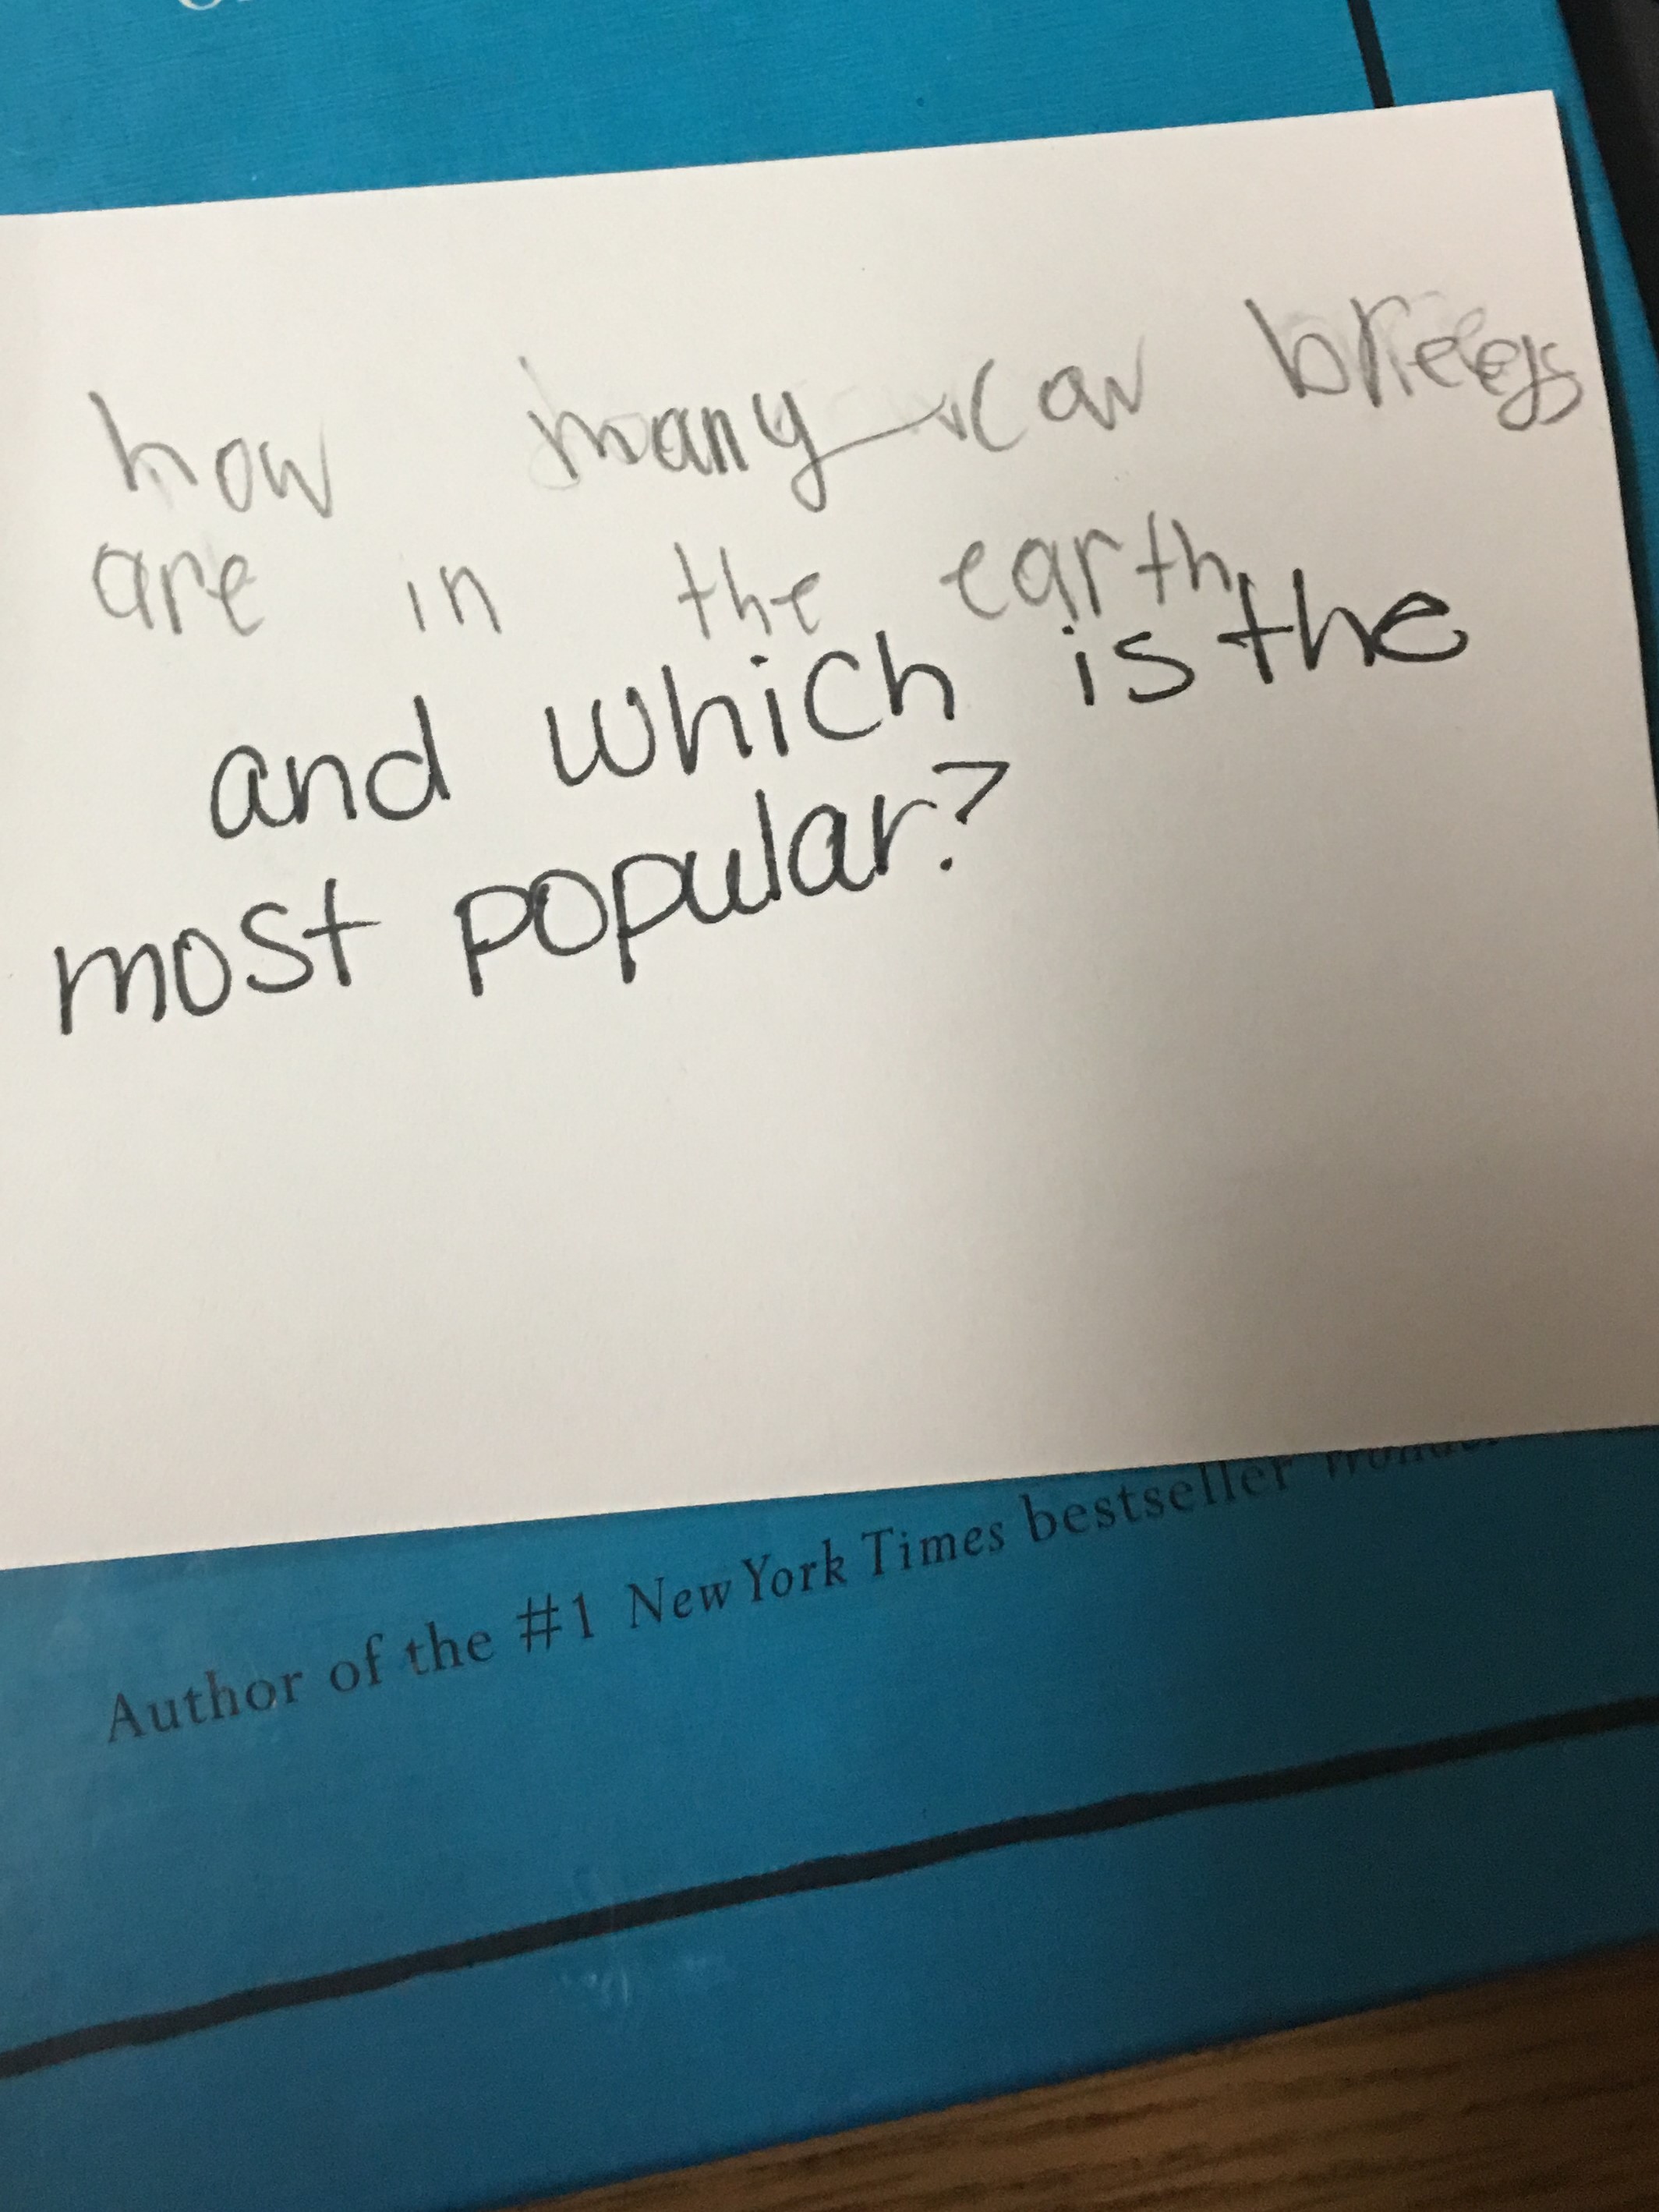 how many car breegs
are in the earth
and which is the
most popular?
Author of the #1 New York Times bestseller